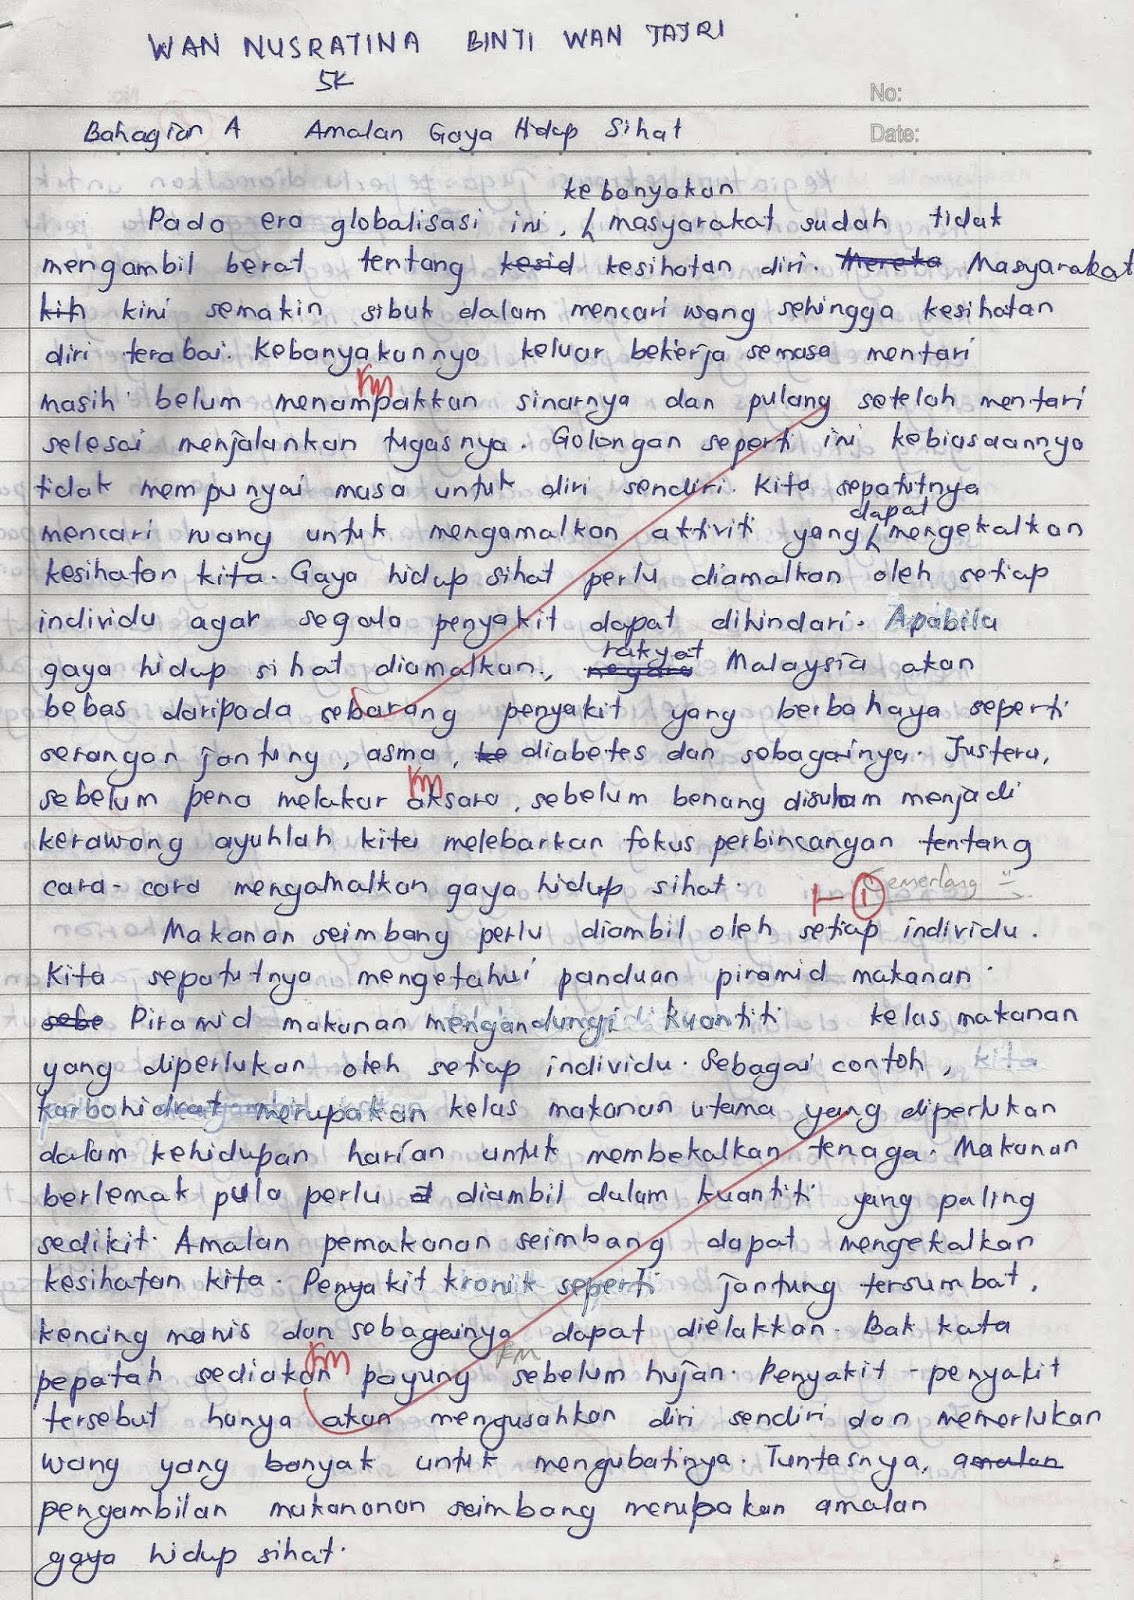 WAN NUSRATINA BINTI WAN TAJRI
5K
No:
Bahagian A Amalan Gaya Hidup Sihat Date:
kebanyakan
Pada era globalisasi ini, masyarakat sudah tidak
mengambil berat tentang kesid kesihatan diri. Mereka Masyarakat
kih kini semakin sibuk dalam mencari wang sehingga kesihatan
diri terabai. Kebanyakannya keluar bekerja semasa mentari
KM
masih belum menampakkan sinarnya dan pulang setelah mentari
selesai menjalankan tugasnya. Golongan seperti ini kebiasaannya
tidak mempunyai masa untuk diri sendiri. Kita sepatutnya
dapat
mencari ruang untuk mengamalkan aktiviti yang mengekalkan
kesihatan kita. Gaya hidup sihat perlu diamalkan oleh setiap
individu agar segala penyakit dapat dihindari. Apabila
rakyat
gaya hidup sihat diamalkan, negara Malaysia akan
bebas daripada sebarang penyakit yang berbahaya seperti
serangan jantung, asma, ke diabetes dan sebagainya. Justeru,
KM
sebelum pena melakar aksara, sebelum benang disulam menjadi
kerawang ayuhlah kita melebarkan fokus perbincangan tentang
cara-cara mengamalkan gaya hidup sihat.
1 Cemerlang
Makanan seimbang perlu diambil oleh setiap individu.
Kita sepatutnya mengetahui panduan piramid makanan.
sebe Piramid makanan mengandungi kuantiti kelas makanan
yang diperlukan oleh setiap individu. Sebagai contoh, kita
karbohidrat merupakan kelas makanan utama yang diperlukan
dalam kehidupan harian untuk membekalkan tenaga. Makanan
berlemak pula perlu diambil dalam kuantiti yang paling
sedikit. Amalan pemakanan seimbang dapat mengekalkan
kesihatan kita. Penyakit kronik seperti jantung tersumbat,
kencing manis dan sebagainya dapat dielakkan. Bak kata
KM KM
pepatah sediakan payung sebelum hujan. Penyakit-penyakit
tersebut hanya akan mengusahkan diri sendiri dan memerlukan
wang yang banyak untuk mengubatinya. Tuntasnya, amalan
pengambilan makananan seimbang merupakan amalan
gaya hidup sihat.